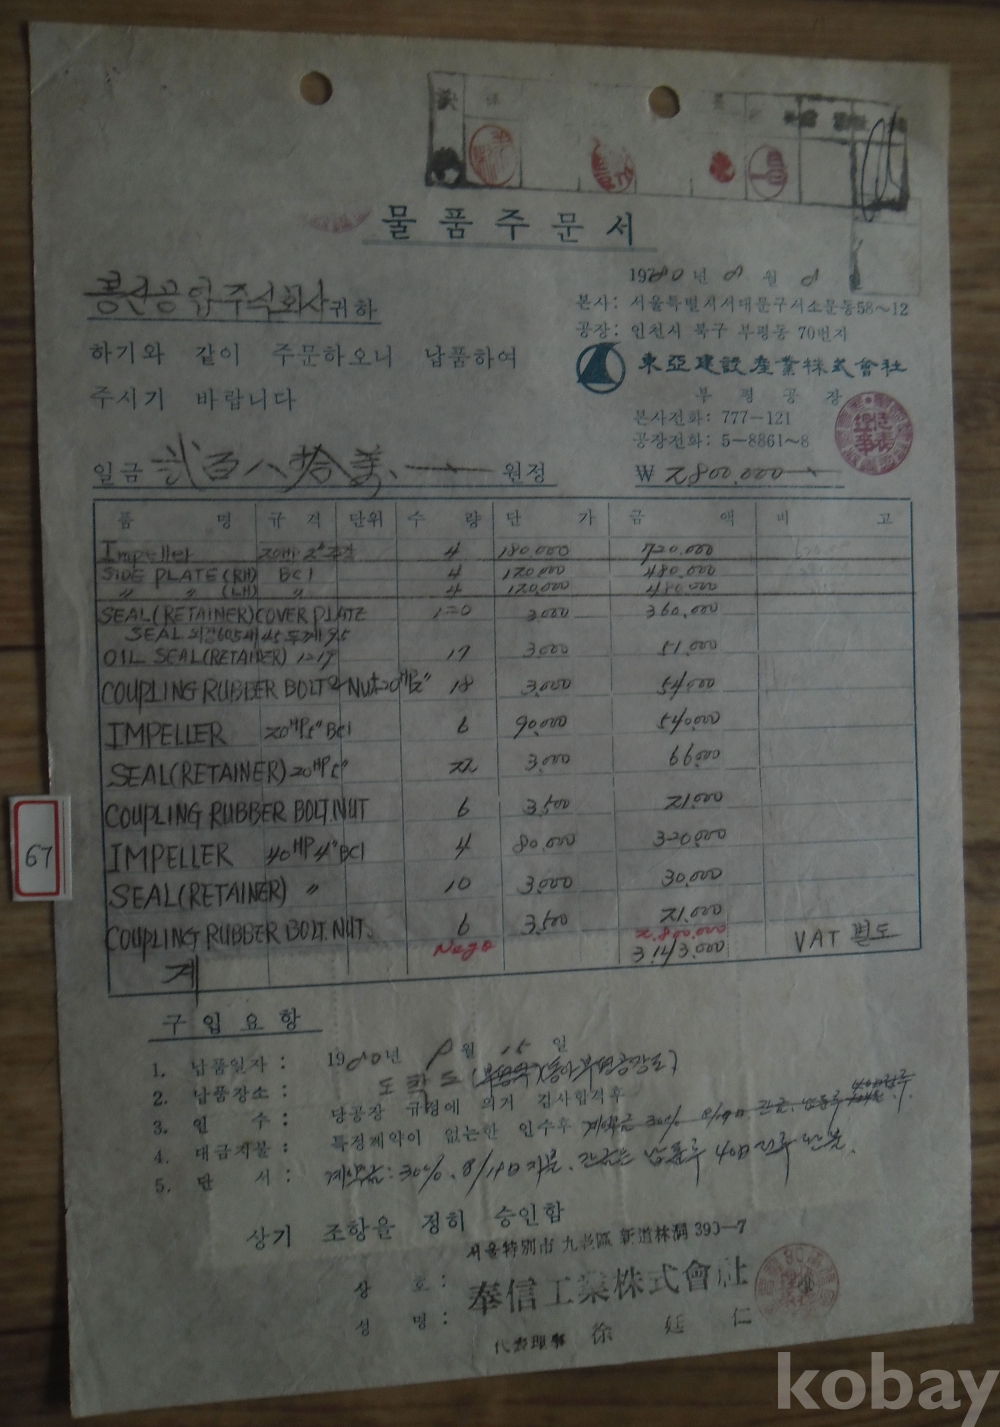 물품주문서
1980년 8월 8
봉신공업주식회사 귀하
본사: 서울특별시서대문구서소문동58~12
공장: 인천시 북구 부평동 70번지
하기와 같이 주문하오니 납품하여
東亞建設産業株式會社
주시기 바랍니다
부평공장
본사전화: 777-121
공장전화: 5-8861~8
일금 원정
₩ 2,800,000
품명 규격 단위 수량 단가 금액 비고
Impeller 4 180,000 720,000
SIDE PLATE (RH) BCI 4 120,000 480,000
〃 〃 (LH) 〃 4 120,000 480,000
SEAL (RETAINER) COVER PLATE 120 3,000 360,000
SEAL
OIL SEAL (RETAINER) 17 3,000 51,000
COUPLING RUBBER BOLT와 Nut 18 3,000 54,000
IMPELLER 20HP 5" BCI 6 90,000 540,000
SEAL (RETAINER) 20HP 5" 22 3,000 66,000
COUPLING RUBBER BOLT.NUT 6 3,500 21,000
IMPELLER 40HP 4" BCI 4 80,000 320,000
SEAL (RETAINER) 〃 10 3,000 30,000
COUPLING RUBBER BOLT.NUT. 6 3,500 21,000
Nego 2,800,000
계 3,143,000 VAT 별도
구입요항
1. 납품일자: 1980년 8월 15일
2. 납품장소: 도착도 (동아부평공장도)
3. 인수: 당공장 규정에 의거 검사합격후
4. 대금지불: 특정제약이 없는한 인수후
5. 단서: 계약금: 30%, 8/19日 지불. 잔금은 납품후
상기 조항을 정히 승인함
서울特別市 九老區 新道林洞 393-7
상호: 奉信工業株式會社
성명: 代表理事 徐廷仁
67
kobay